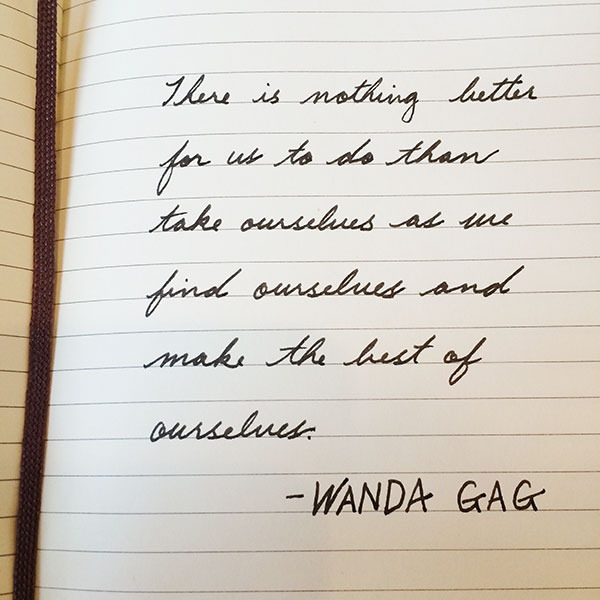 There is nothing better
for us to do than
take ourselves as we
find ourselves and
make the best of
ourselves.
-WANDA GAG